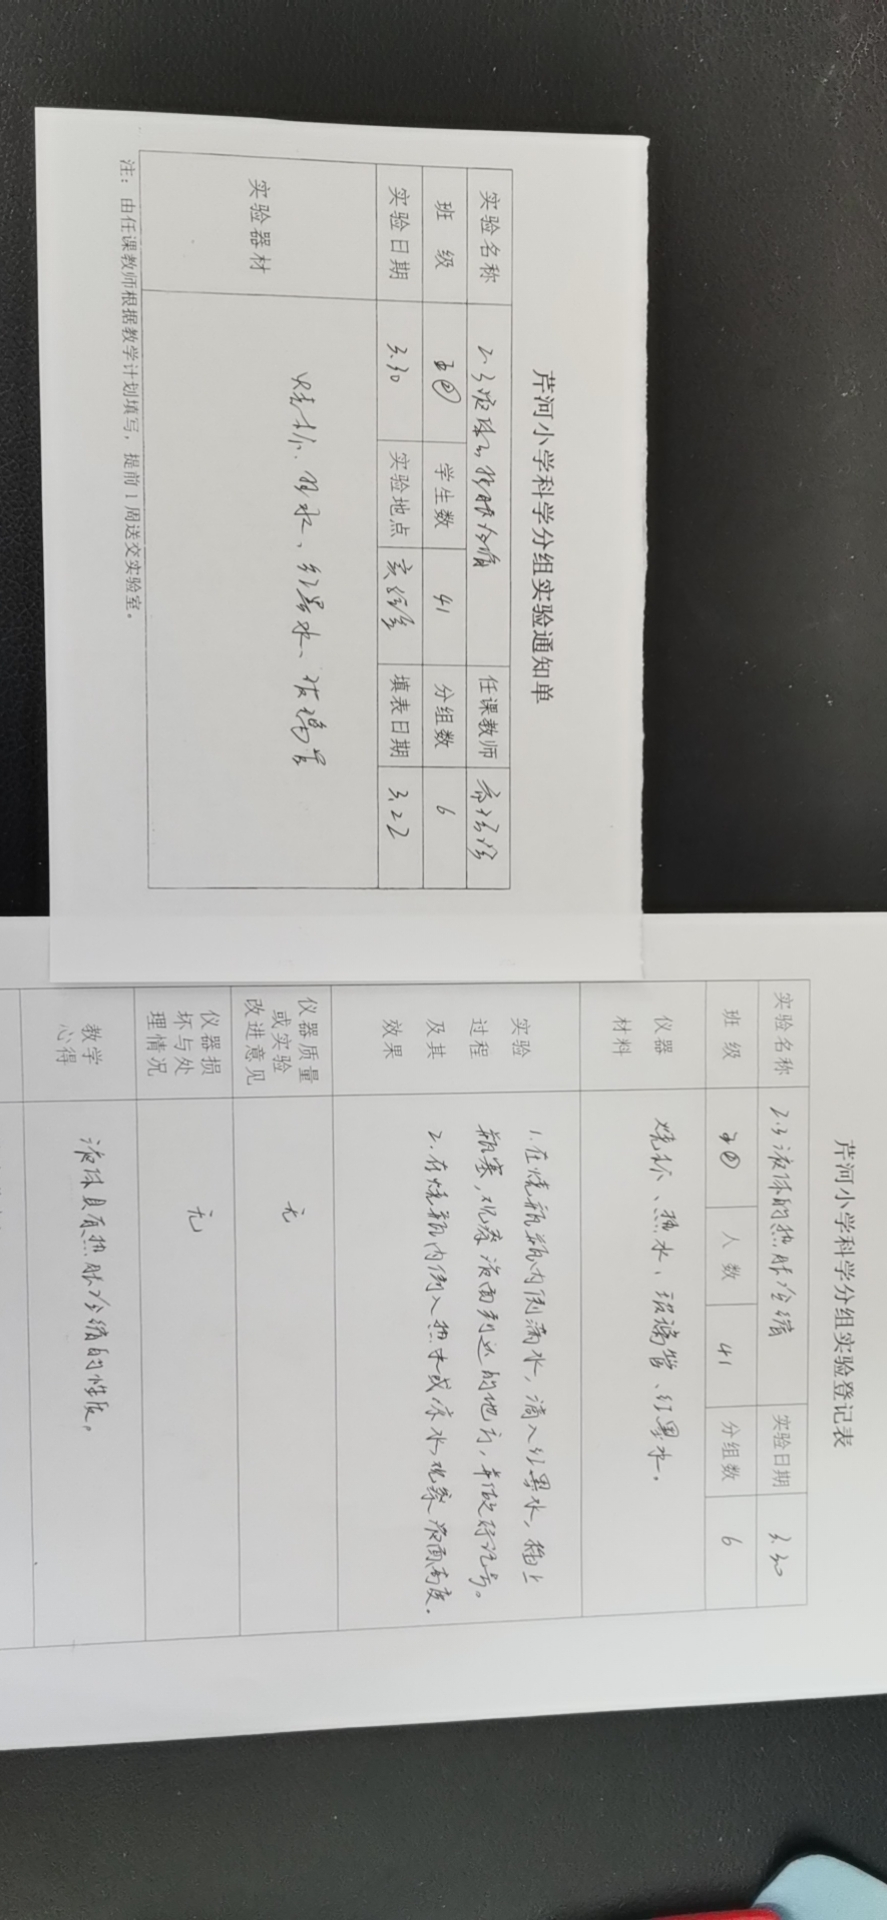 芹河小学科学分组实验通知单
实验名称 2.3液体的热胀冷缩 任课教师
班 级 学生数 41 分组数 6
实验日期 3.30 实验地点 实验室 填表日期 3.22
实验器材 烧杯、 水、红墨水、玻璃管
注：由任课教师根据教学计划填写，提前1周送交实验室。
芹河小学科学分组实验登记表
实验名称 2.3液体的热胀冷缩 实验日期 3.30
班 级 人 数 41 分组数 6
仪器
材料
烧杯、热水、玻璃管、红墨水。
实验
过程
及其
效果
1.在烧瓶瓶内倒满水，滴入红墨水，插上
瓶塞，观察液面到达的地方，并做好记号。
2.在烧瓶内倒入热水或凉水，观察液面高度.
仪器质量
或实验
改进意见
无
仪器损
坏与处
理情况
无
教学
心得
液体具有热胀冷缩的性质。